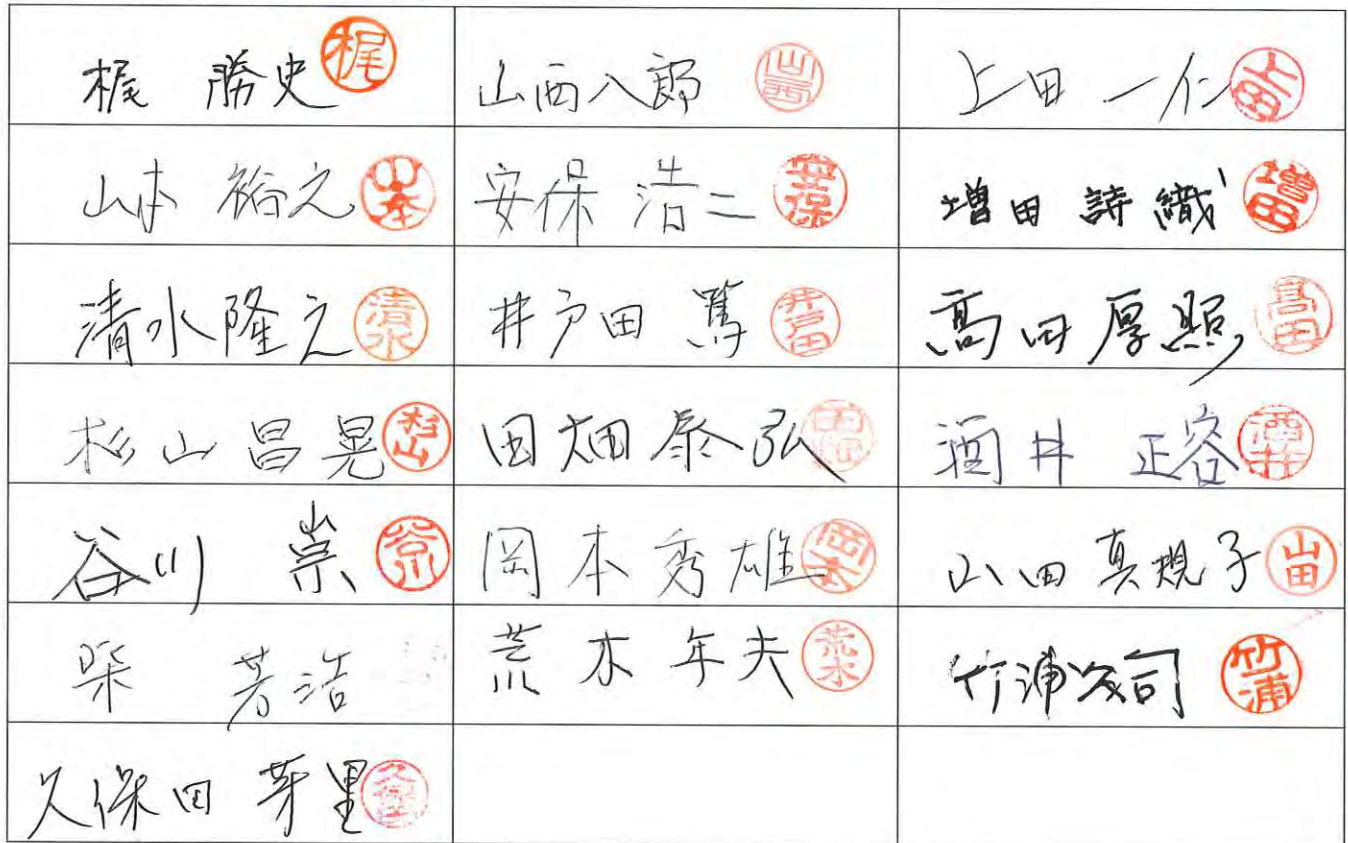 梶 勝史 梶 山西八郎 山西 上田 一仁 上田
山本 裕之 山本 安保 浩二 安保 増田 詩織 増田
清水隆之 清水 井戸田 篤 井戸田 髙田厚照 髙田
杉山昌晃 杉山 田畑泰弘 田畑 酒井 正容 酒井
谷川 崇 谷川 岡本秀雄 岡本 山田真規子 山田
芳浩 荒木年夫 荒木 竹浦 司 竹浦
久保田 芽里 久保田